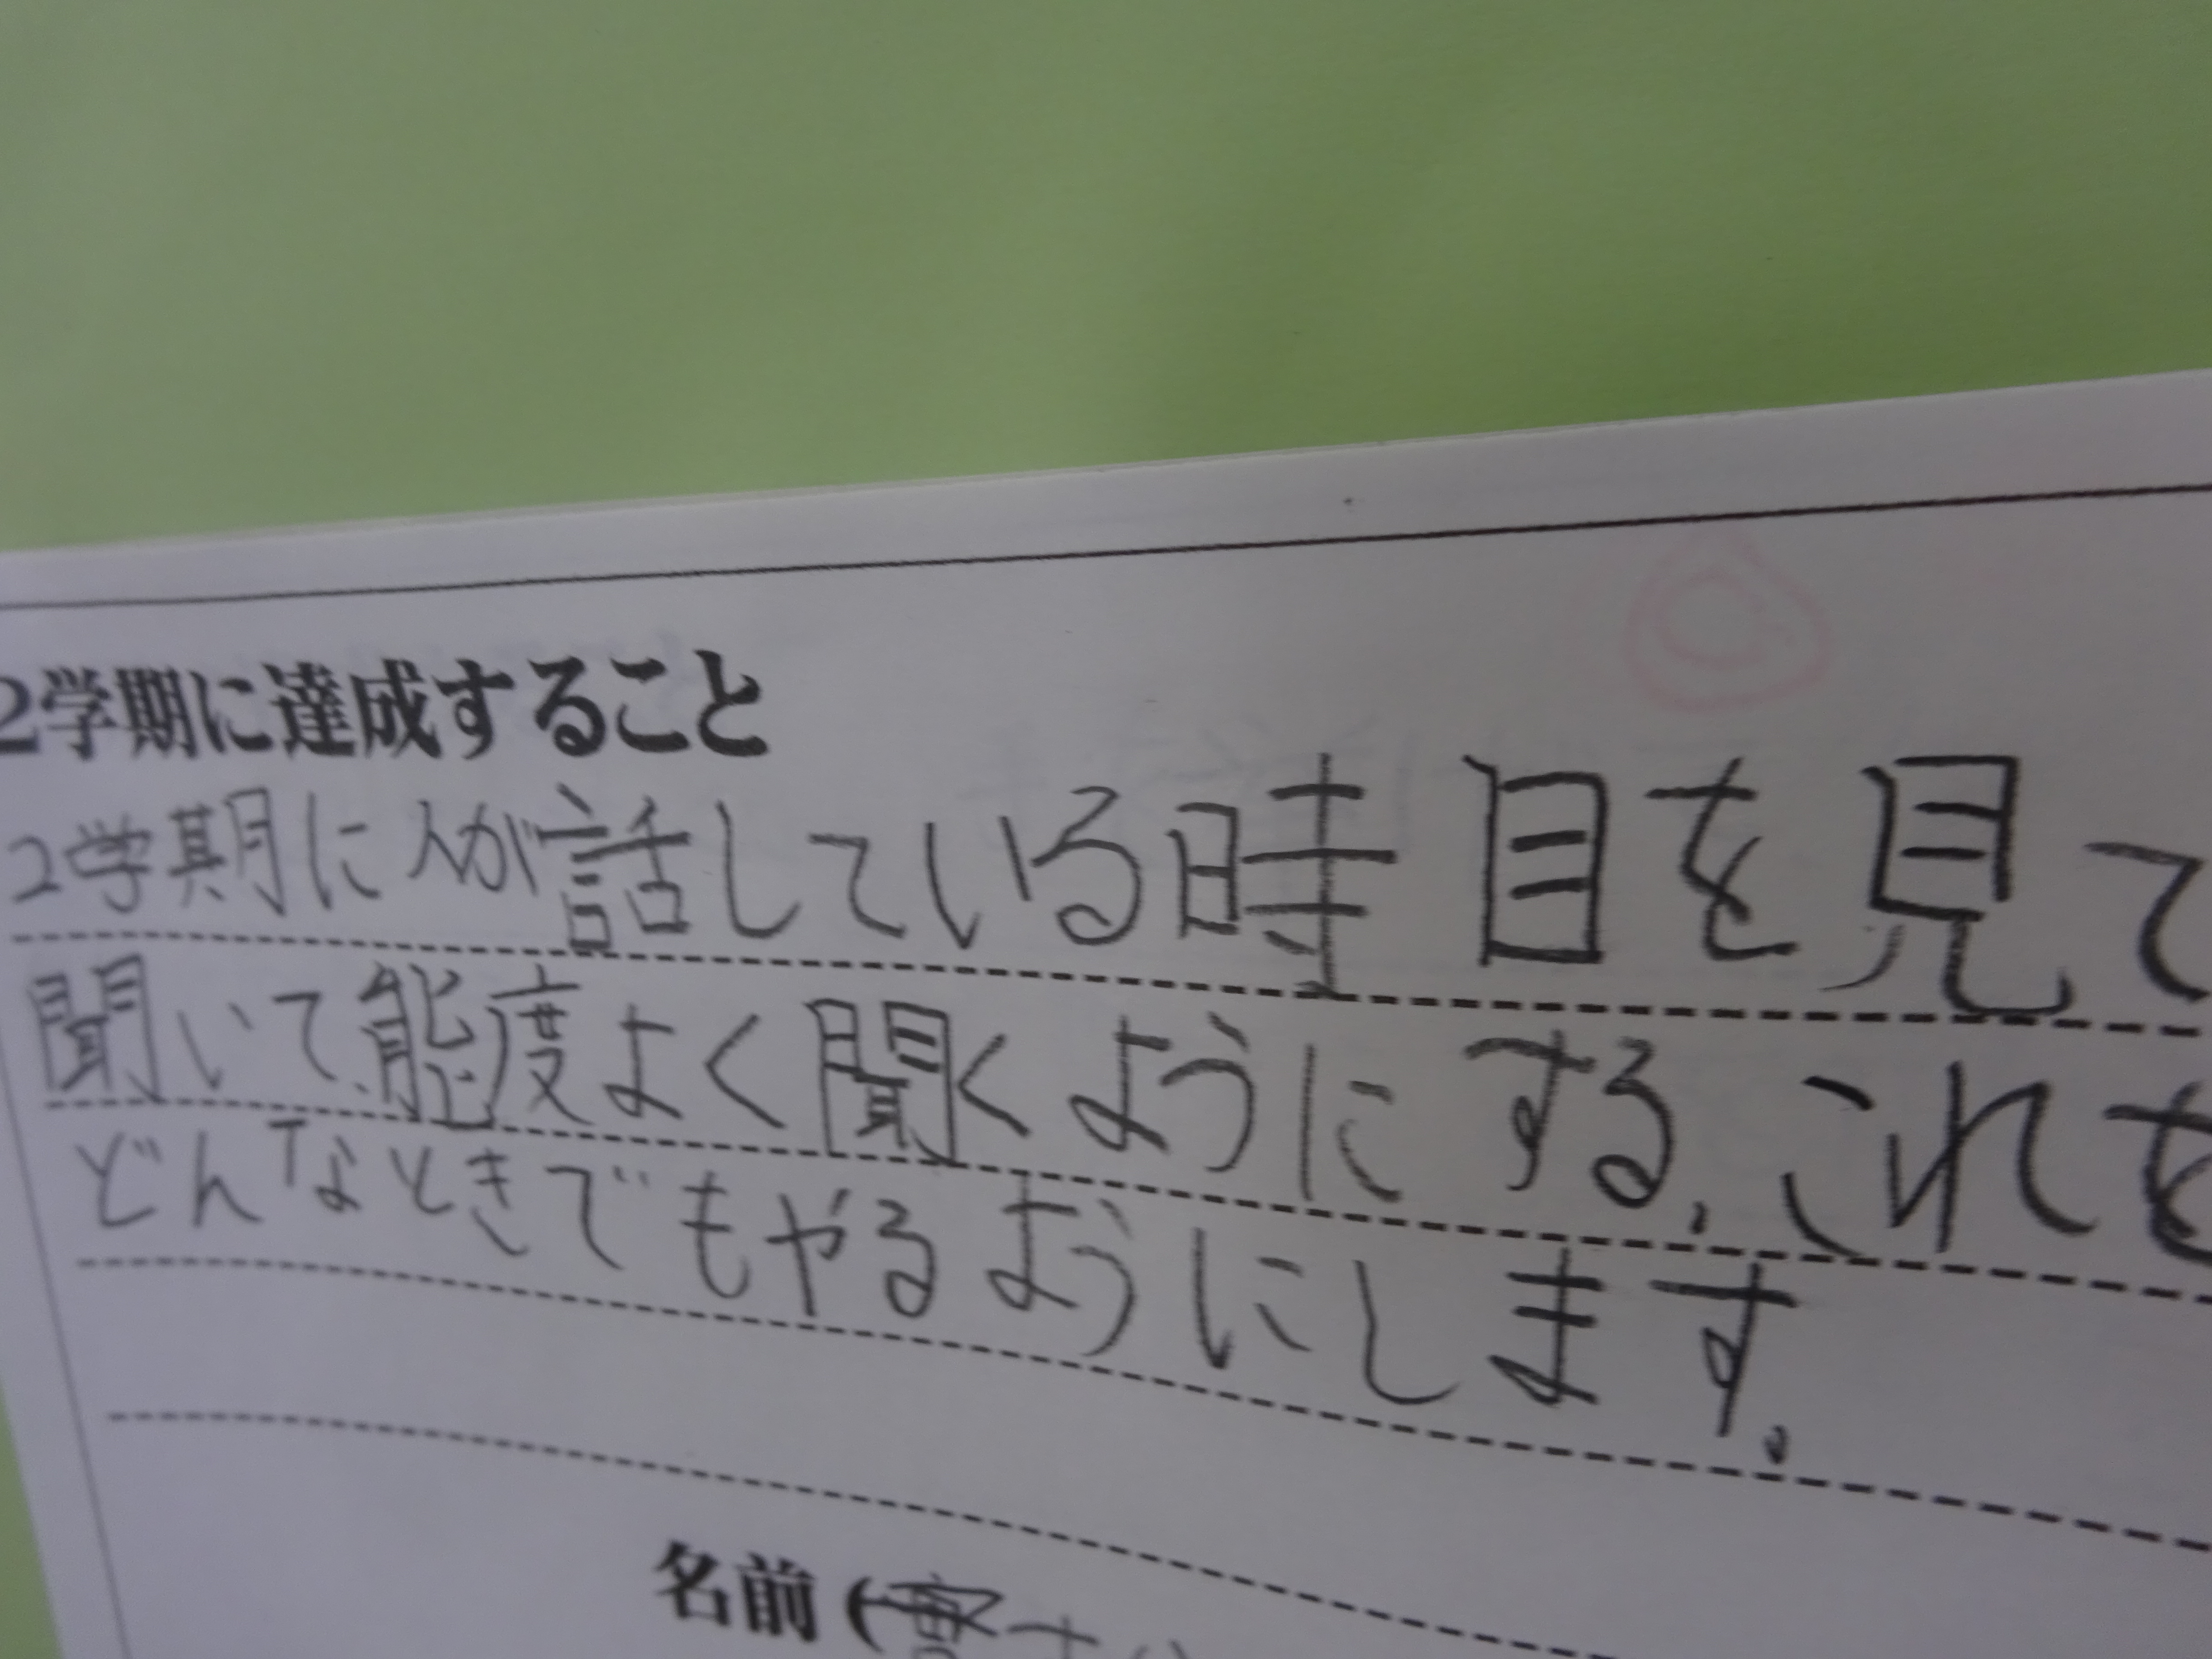 2学期に達成すること
2学期に人が話している時目を見て
聞いて、能度よく聞くようにする。これを
どんなときでもやるようにします。
名前(